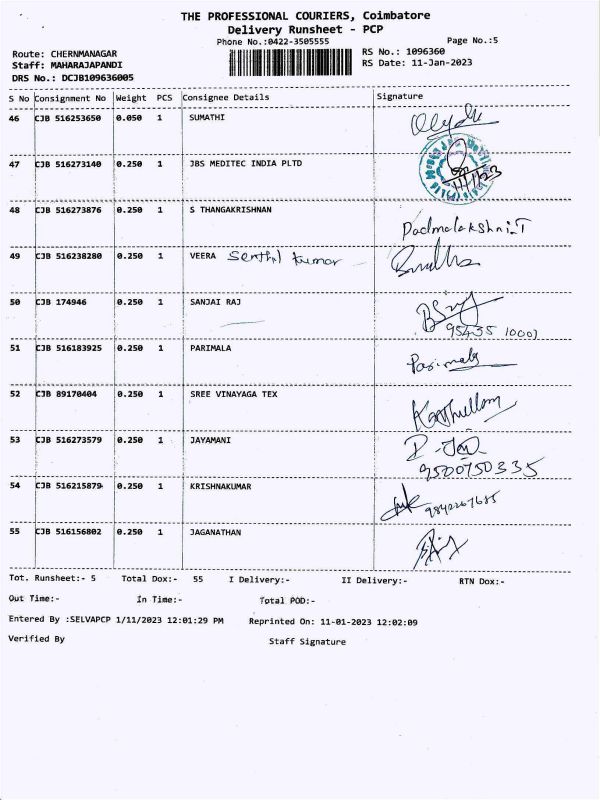 THE PROFESSIONAL COURIERS, Coimbatore
Delivery Runsheet - PCP
Phone No.:0422-3505555 Page No.:5
Route: CHERNMANAGAR RS No.: 1096360
Staff: MAHARAJAPANDI RS Date: 11-Jan-2023
DRS No.: DCJB109636005
S No Consignment No Weight PCS Consignee Details Signature
46 CJB 516253650 0.050 1 SUMATHI
47 CJB 516273140 0.250 1 JBS MEDITEC INDIA PLTD
11/1/23
48 CJB 516273876 0.250 1 S THANGAKRISHNAN
Padmalakshmi.T
49 CJB 516238280 0.250 1 VEERA Senthil kumar
50 CJB 174946 0.250 1 SANJAI RAJ
51 CJB 516183925 0.250 1 PARIMALA
Parimala
52 CJB 89170404 0.250 1 SREE VINAYAGA TEX
53 CJB 516273579 0.250 1 JAYAMANI
9500750335
54 CJB 516215879 0.250 1 KRISHNAKUMAR
9842267685
55 CJB 516156802 0.250 1 JAGANATHAN
Tot. Runsheet:- 5 Total Dox:- 55 I Delivery:- II Delivery:- RTN Dox:-
Out Time:- In Time:- Total POD:-
Entered By :SELVAPCP 1/11/2023 12:01:29 PM Reprinted On: 11-01-2023 12:02:09
Verified By Staff Signature